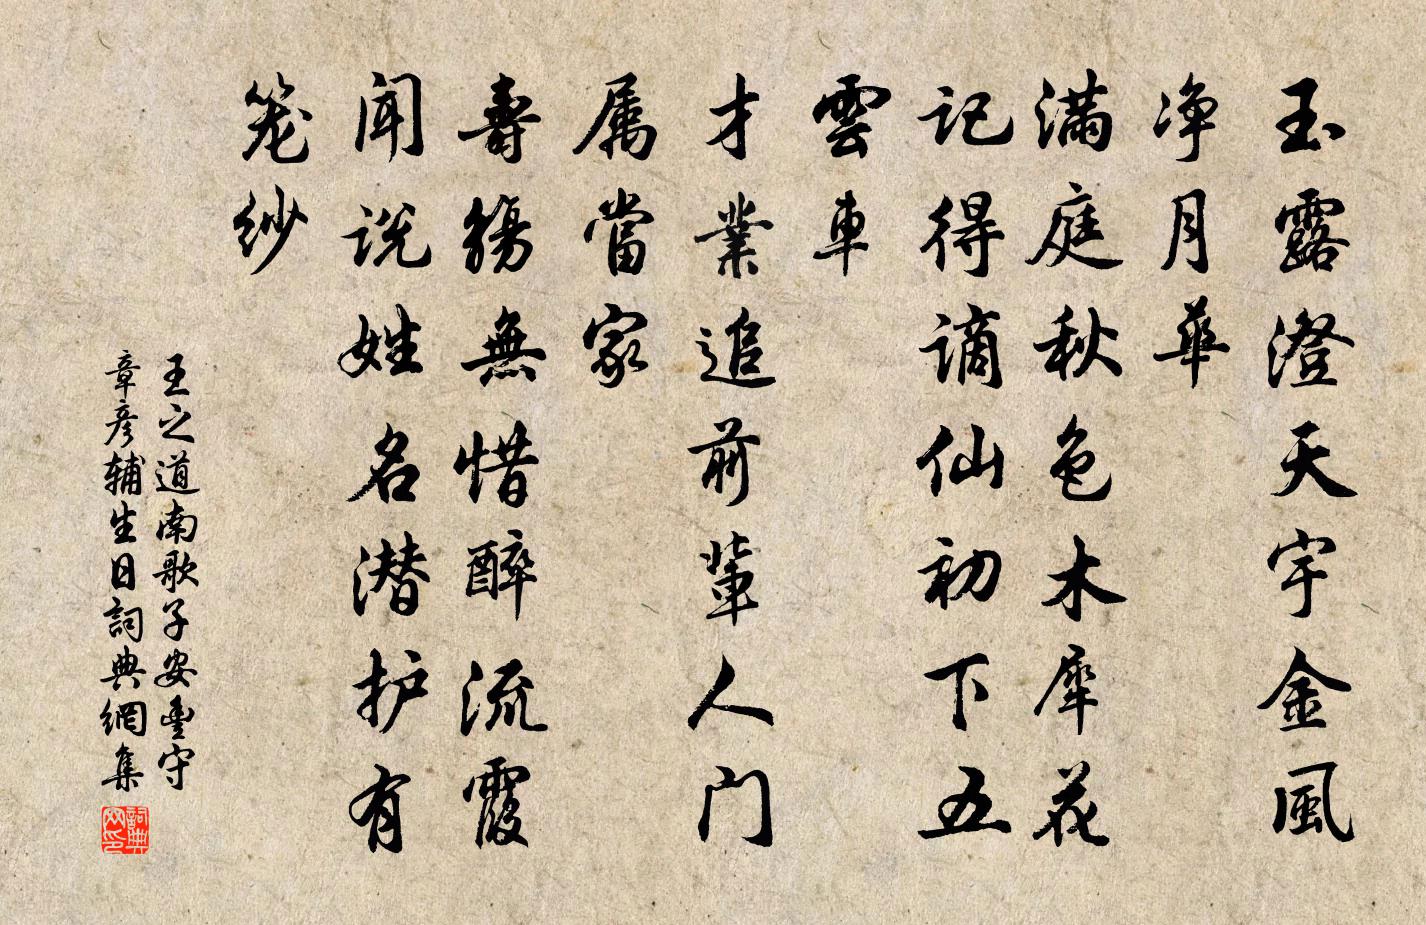 玉露澄天宇金風
净月華
满庭秋色木犀花
記得谪仙初下五
雲車
才業追前輩人门
属當家
壽觴無惜醉流霞
闻说姓名潜护有
笼纱
王之道南歌子安豊守
章彦辅生日詞典網集
詞典網印